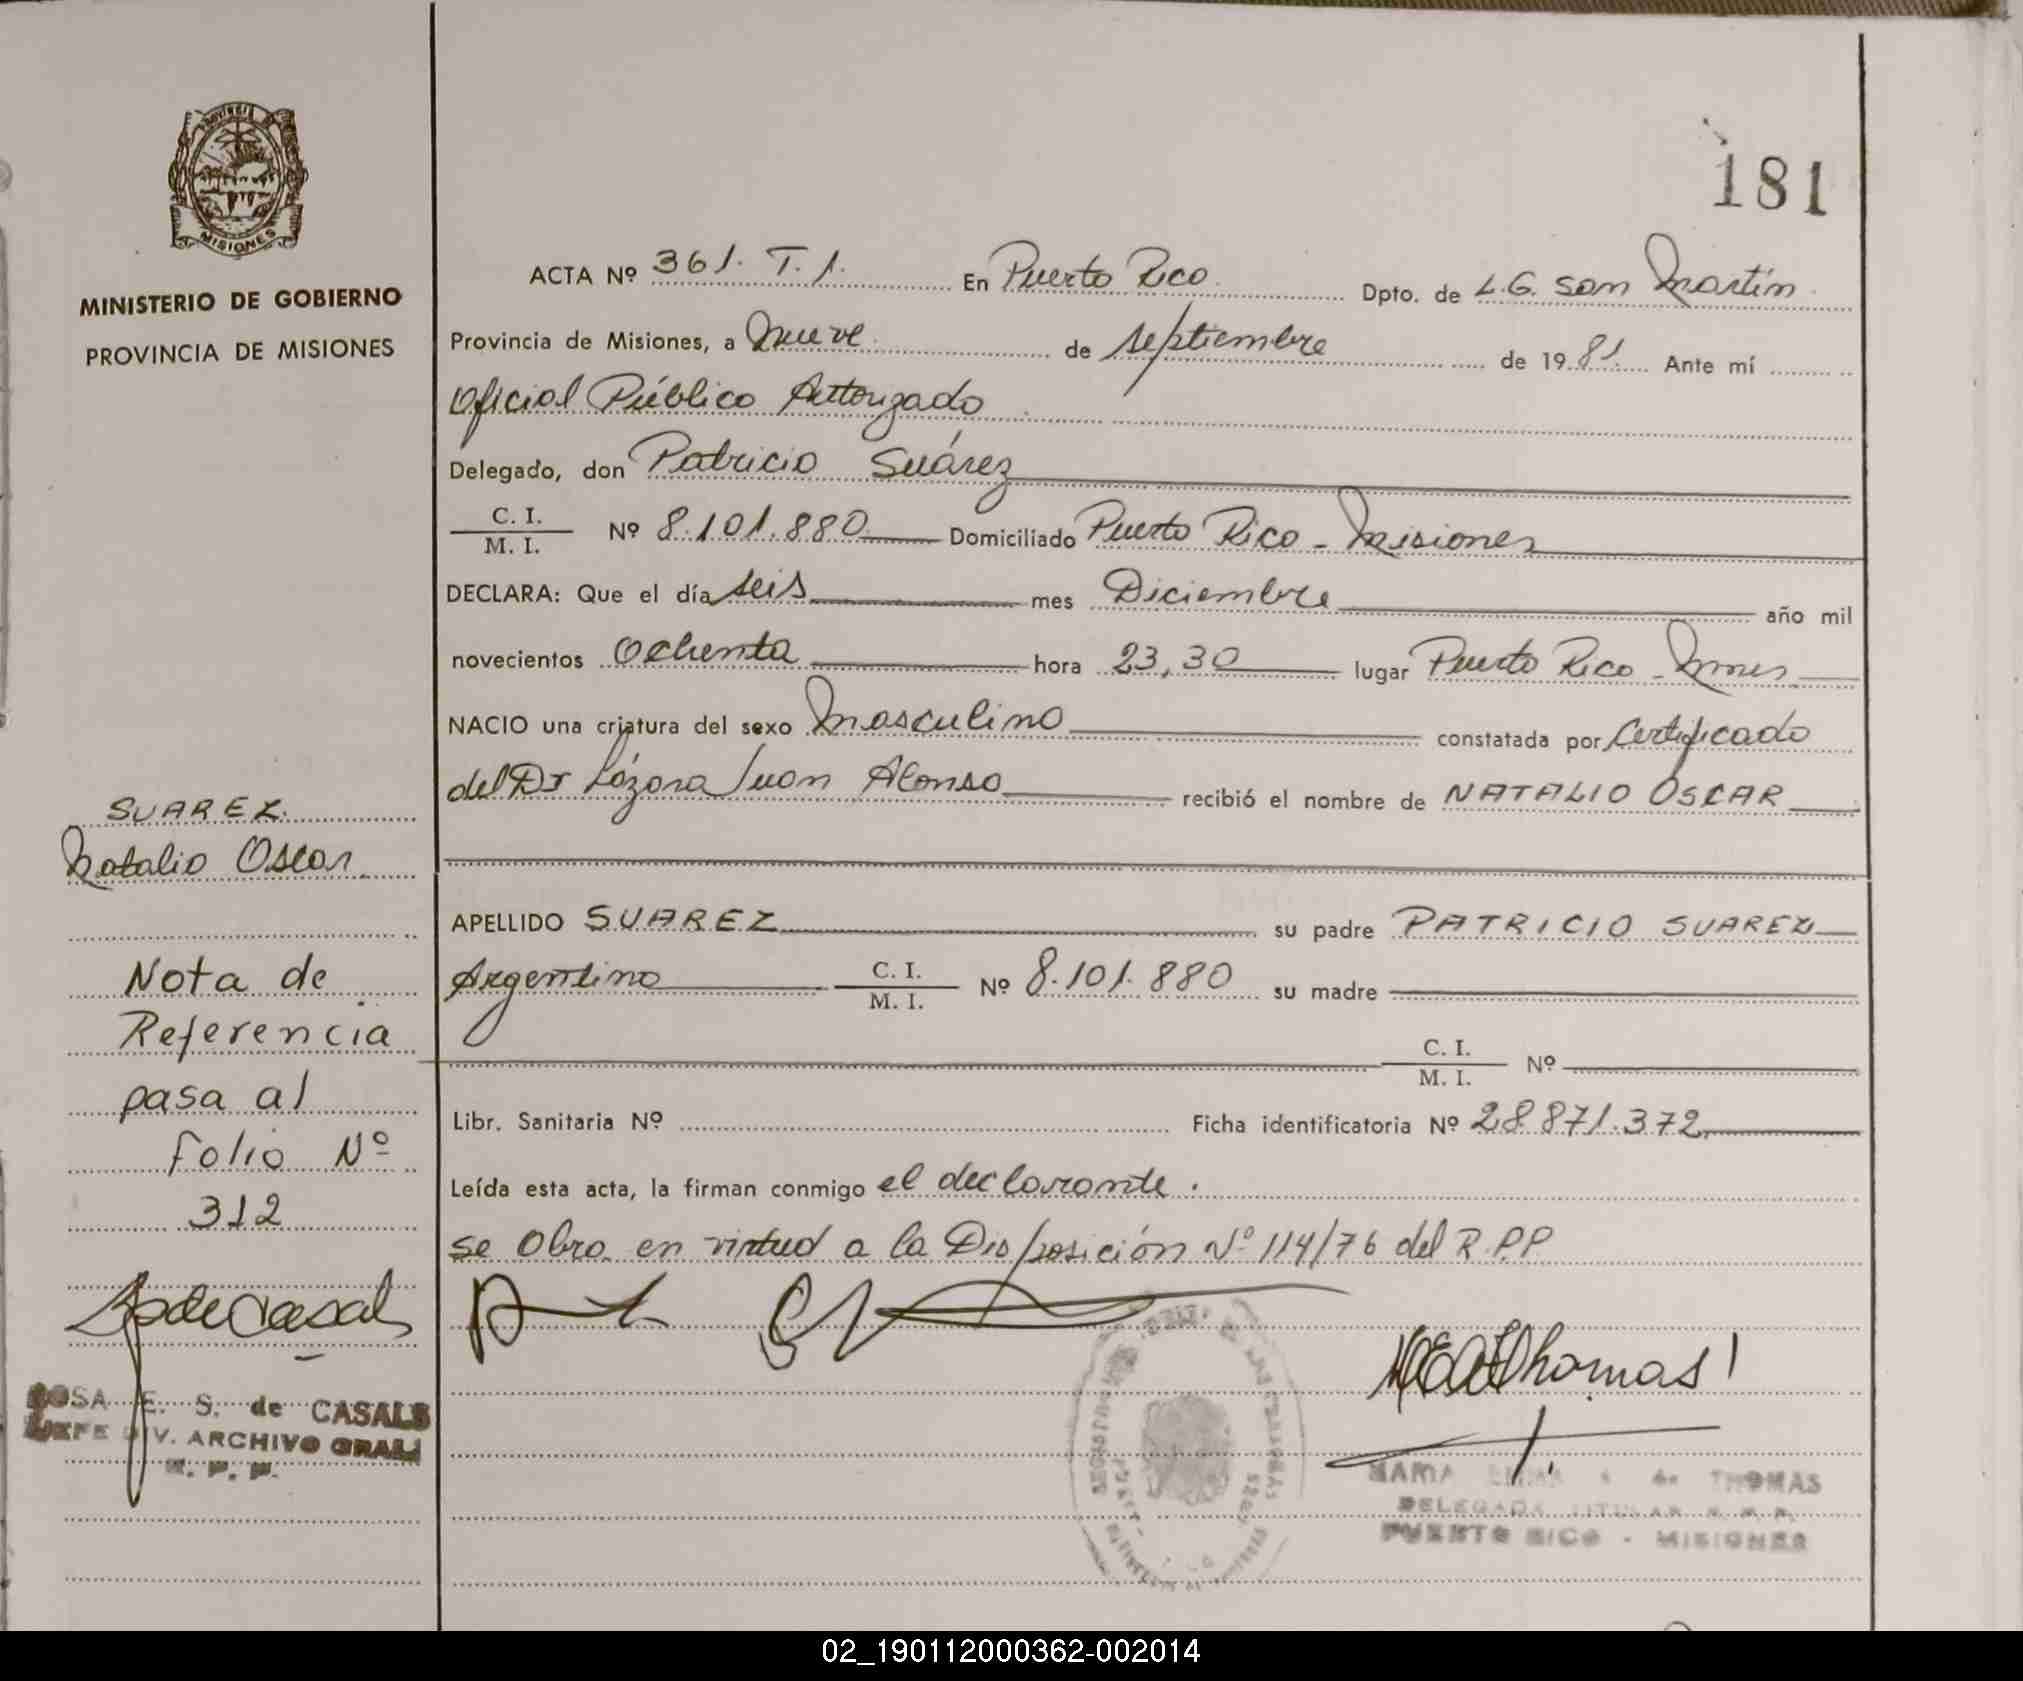 181
PROVINCIA DE
MISIONES
MINISTERIO DE GOBIERNO
PROVINCIA DE MISIONES
ACTA Nº 361. T. 1. En Puerto Rico. Dpto. de L.G. San Martín.
Provincia de Misiones, a Nueve. de septiembre de 1981. Ante mí
Oficial Público Autorizado
Delegado, don Patricio Suárez
C. I. / M. I. Nº 8.101.880 Domiciliado Puerto Rico - Misiones
DECLARA: Que el día seis mes Diciembre año mil
novecientos Ochenta hora 23,30 lugar Puerto Rico - Mnes
NACIO una criatura del sexo Masculino constatada por Certificado
del Dr Lázara Juan Alonso recibió el nombre de NATALIO OSCAR
APELLIDO SUAREZ su padre PATRICIO SUAREZ
Argentino C. I. / M. I. Nº 8.101.880 su madre
C. I. / M. I. Nº
Libr. Sanitaria Nº Ficha identificatoria Nº 28.871.372
Leída esta acta, la firman conmigo el declarante.
se Obra en virtud a la Disposición Nº 114/76 del R.P.P.
SUAREZ.
Natalio Oscar.
Nota de
Referencia
pasa al
Folio Nº
312
ROSA E. S. de CASALS
JEFE DIV. ARCHIVO GRAL.
R. P. P.
Thomas
de THOMAS
DELEGADA TITULAR
PUERTO RICO - MISIONES
02_190112000362-002014